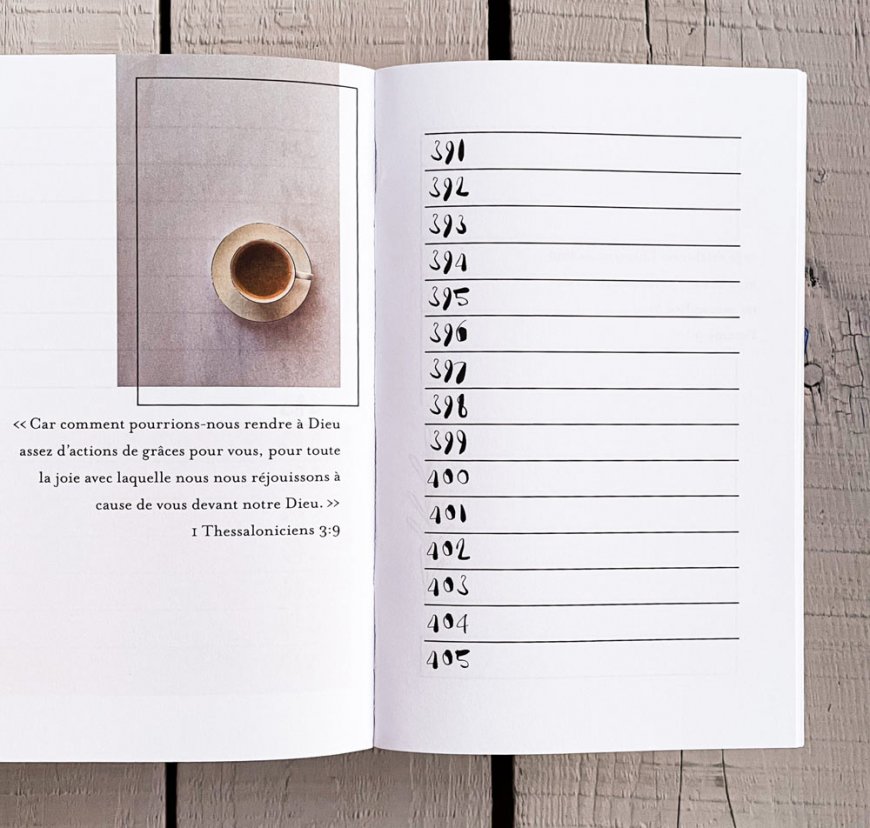 << Car comment pourrions-nous rendre à Dieu
assez d'actions de grâces pour vous, pour toute
la joie avec laquelle nous nous réjouissons à
cause de vous devant notre Dieu. >>
1 Thessaloniciens 3:9
391
392
393
394
395
396
397
398
399
400
401
402
403
404
405